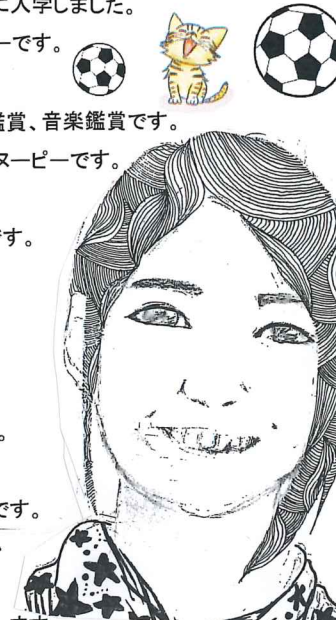 に入学しました。
ーです。
賞、音楽鑑賞です。
ヌーピーです。
す。
。
です。